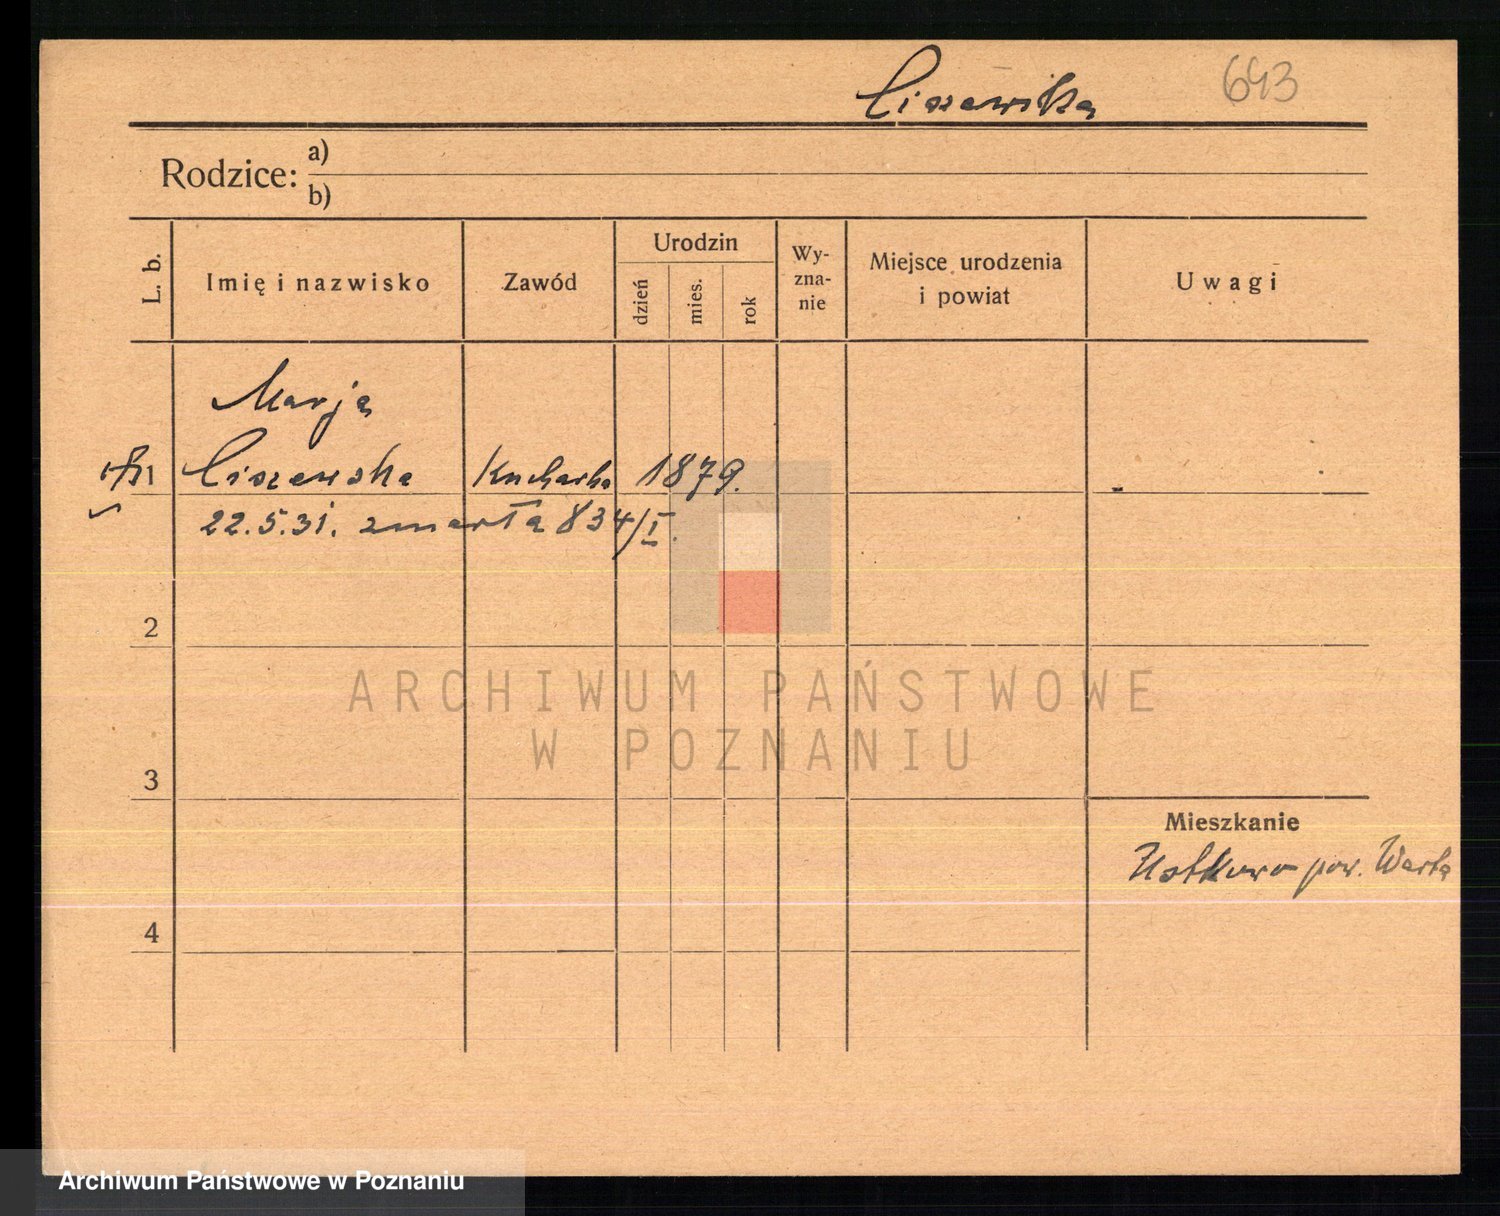 Ciszewska 643
Rodzice: a)
b)
L. b.
Imię i nazwisko
Zawód
Urodzin
dzień
mies.
rok
Wy-
zna-
nie
Miejsce urodzenia
i powiat
Uwagi
Marja
1 Ciszewska Kucharka 1879.
22.5.31. zmarła 834/I.
2
ARCHIWUM PAŃSTWOWE
W POZNANIU
3
Mieszkanie
pow. Warta
4
Archiwum Państwowe w Poznaniu